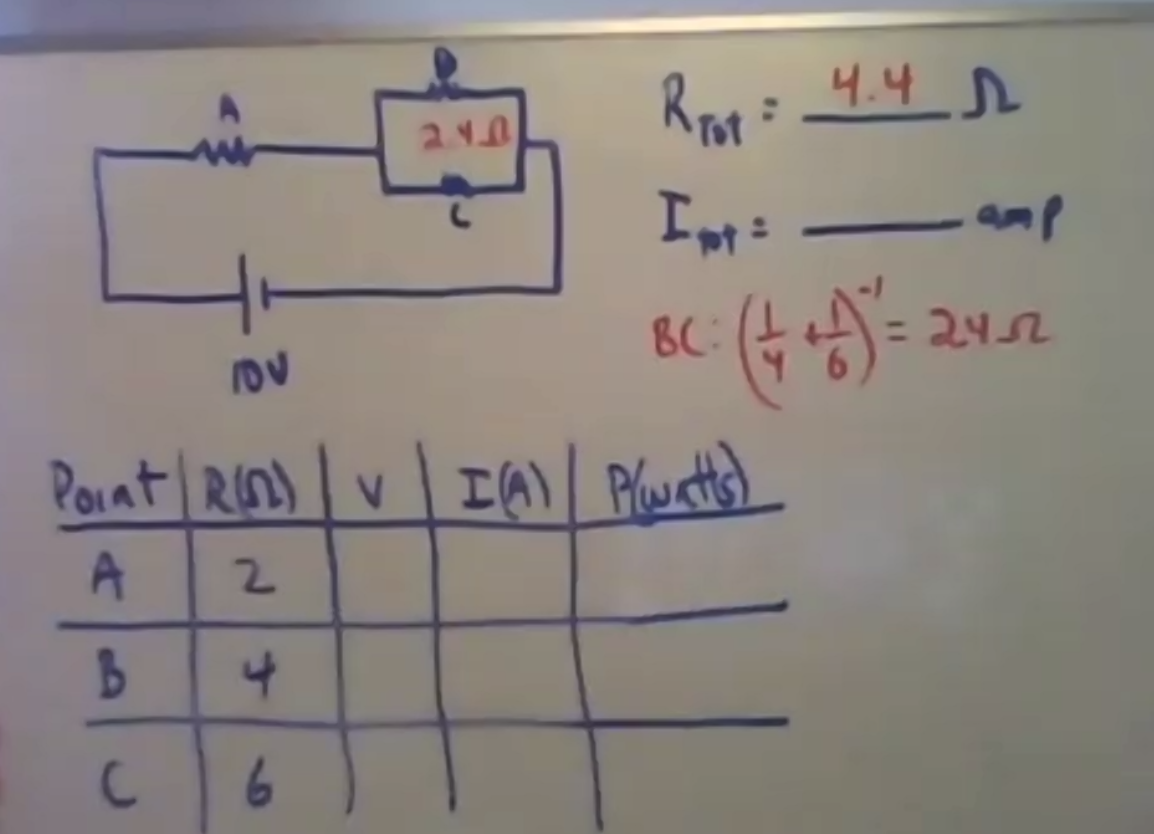 B
A
2.4Ω
C
10V
R_TOT = 4.4 Ω
I_TOT = ____ amp
BC: (1/4 + 1/6)^-1 = 2.4Ω
Point R(Ω) V I(A) P(watts)
A 2
B 4
C 6